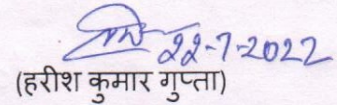 22-7-2022
(हरीश कुमार गुप्ता)